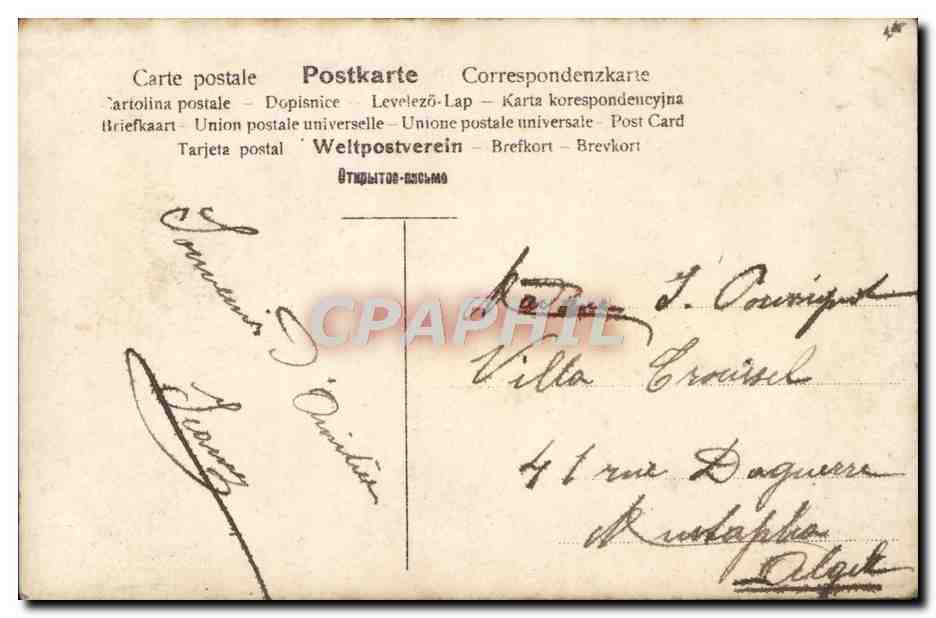 Carte postale Postkarte Correspondenzkarte
Cartolina postale – Dopisnice – Levelező-Lap – Karta korespondencyjna
Briefkaart – Union postale universelle – Unione postale universale – Post Card
Tarjeta postal Weltpostverein – Brefkort – Brevkort
Открытое-письмо
Souvenir
D'Amitiés
CPAPHIL
Madame J.
Villa
41 rue Daguerre
Mustapha
Alger